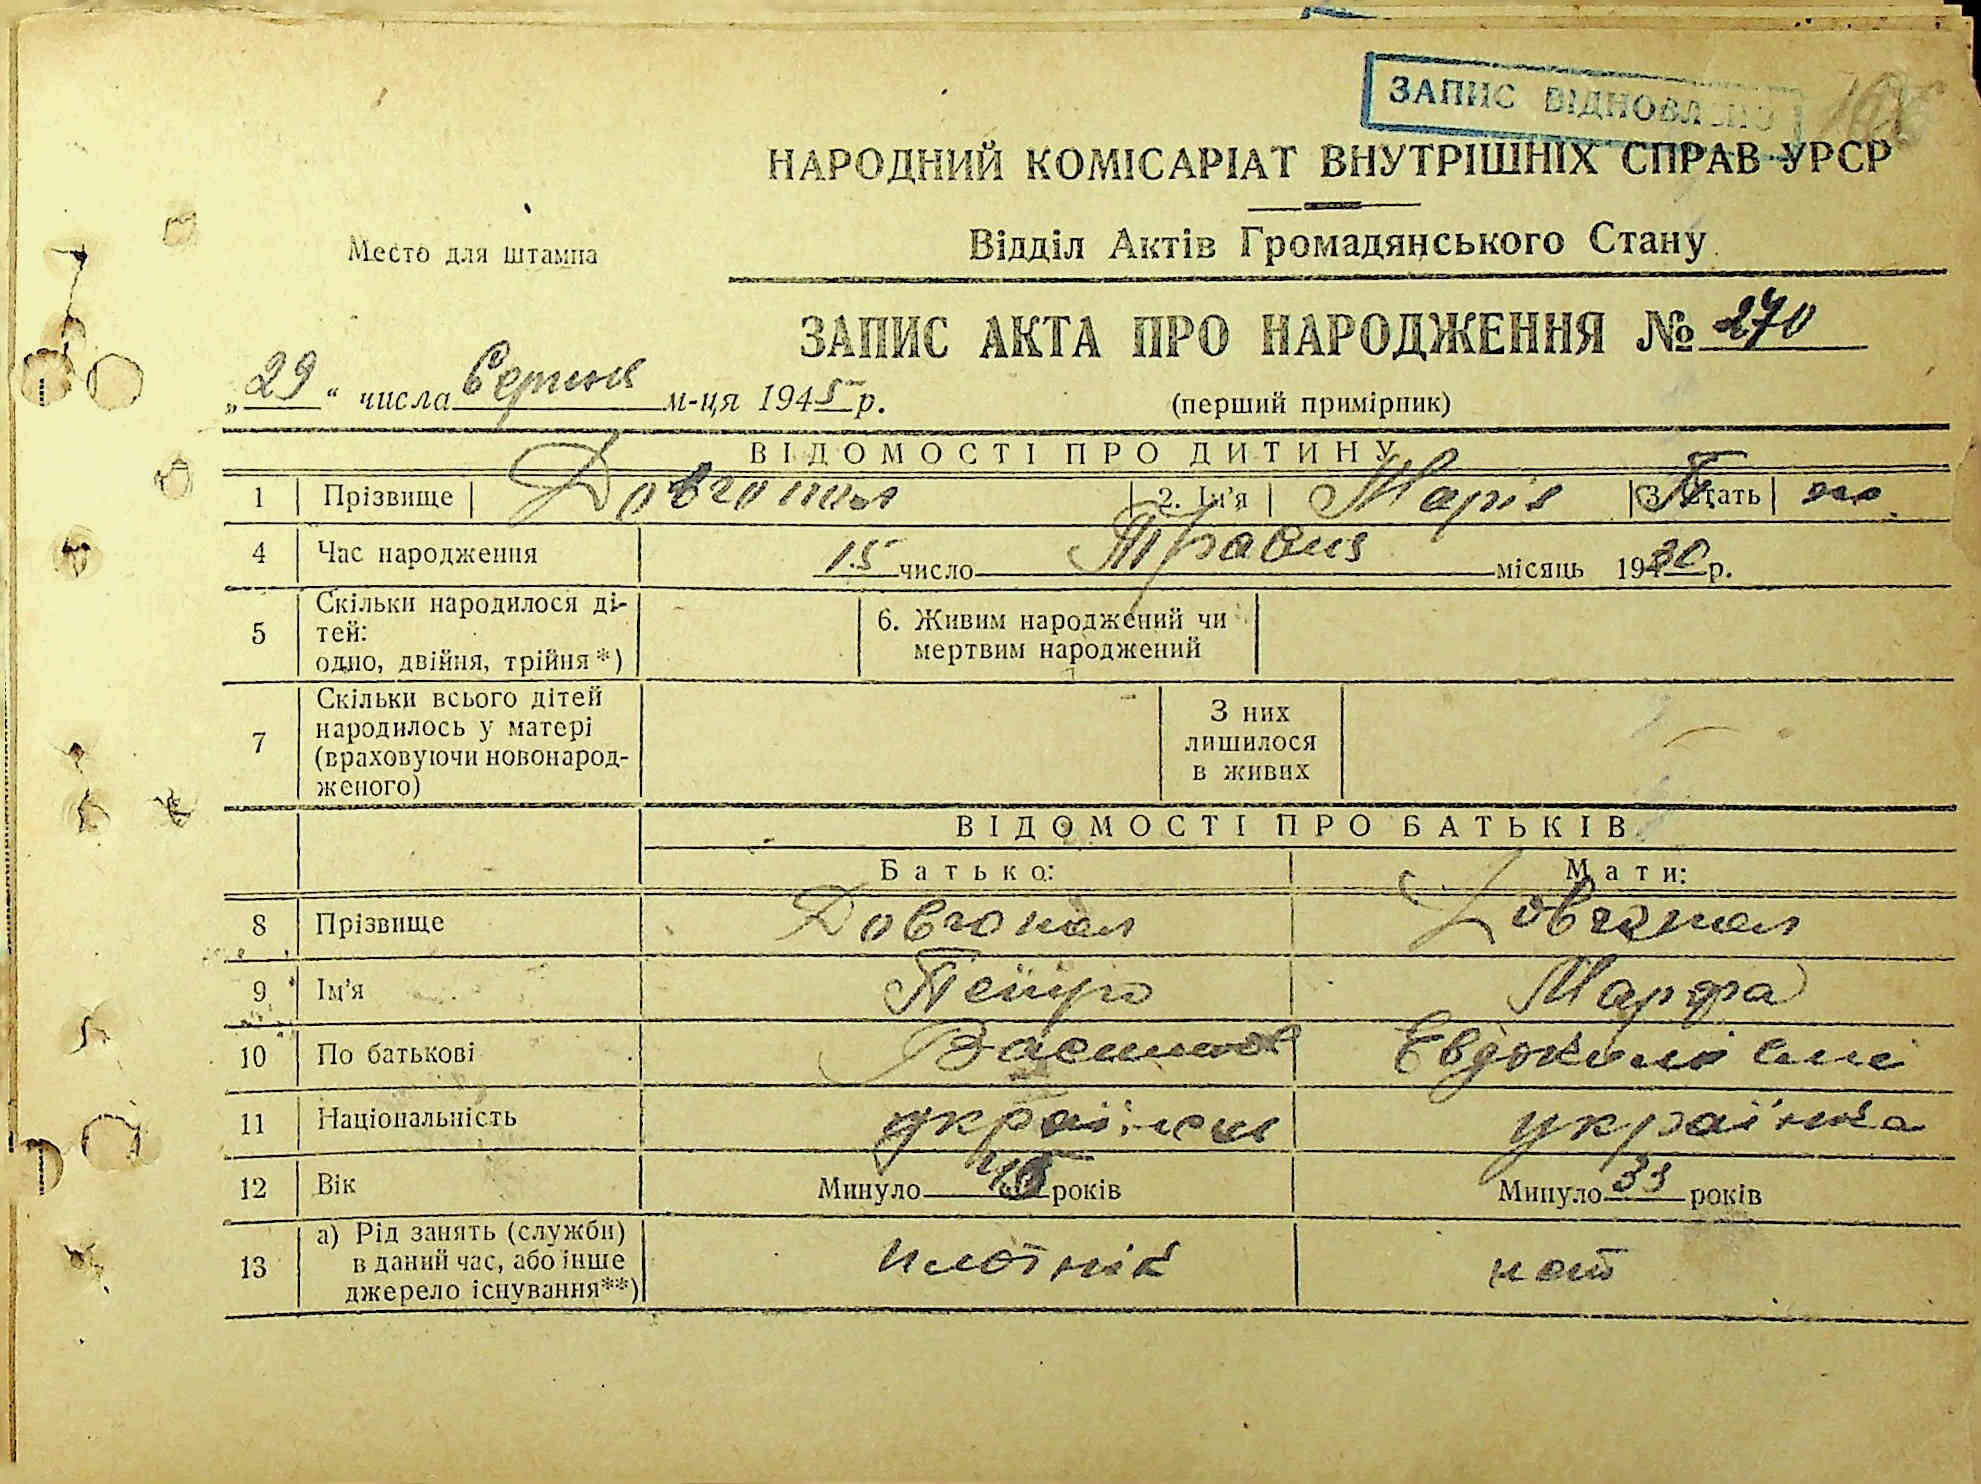 ЗАПИС ВІДНОВЛЕНО
НАРОДНИЙ КОМІСАРІАТ ВНУТРІШНІХ СПРАВ УРСР
Место для штампа
Відділ Актів Громадянського Стану
ЗАПИС АКТА ПРО НАРОДЖЕННЯ № 270
„29“ числа Серпня м-ця 1945 р.
(перший примірник)
ВІДОМОСТІ ПРО ДИТИНУ
1 Прізвище Довгопол 2. Ім'я Марія П. 3. Стать жін.
4 Час народження 15 число Травня місяць 1930 р.
5 Скільки народилося ді-
тей:
одно, двійня, трійня*)
6. Живим народжений чи
мертвим народжений
7 Скільки всього дітей
народилось у матері
(враховуючи новонарод-
женого)
З них
лишилося
в живих
ВІДОМОСТІ ПРО БАТЬКІВ
Батько: Мати:
8 Прізвище Довгопол Довгопол
9 Ім'я Петро Марфа
10 По батькові Васильов Евдокимівні
11 Національність українець українка
12 Вік Минуло 45 років Минуло 33 років
13 а) Рід занять (служби)
в даний час, або інше
джерело існування**)
плотнік